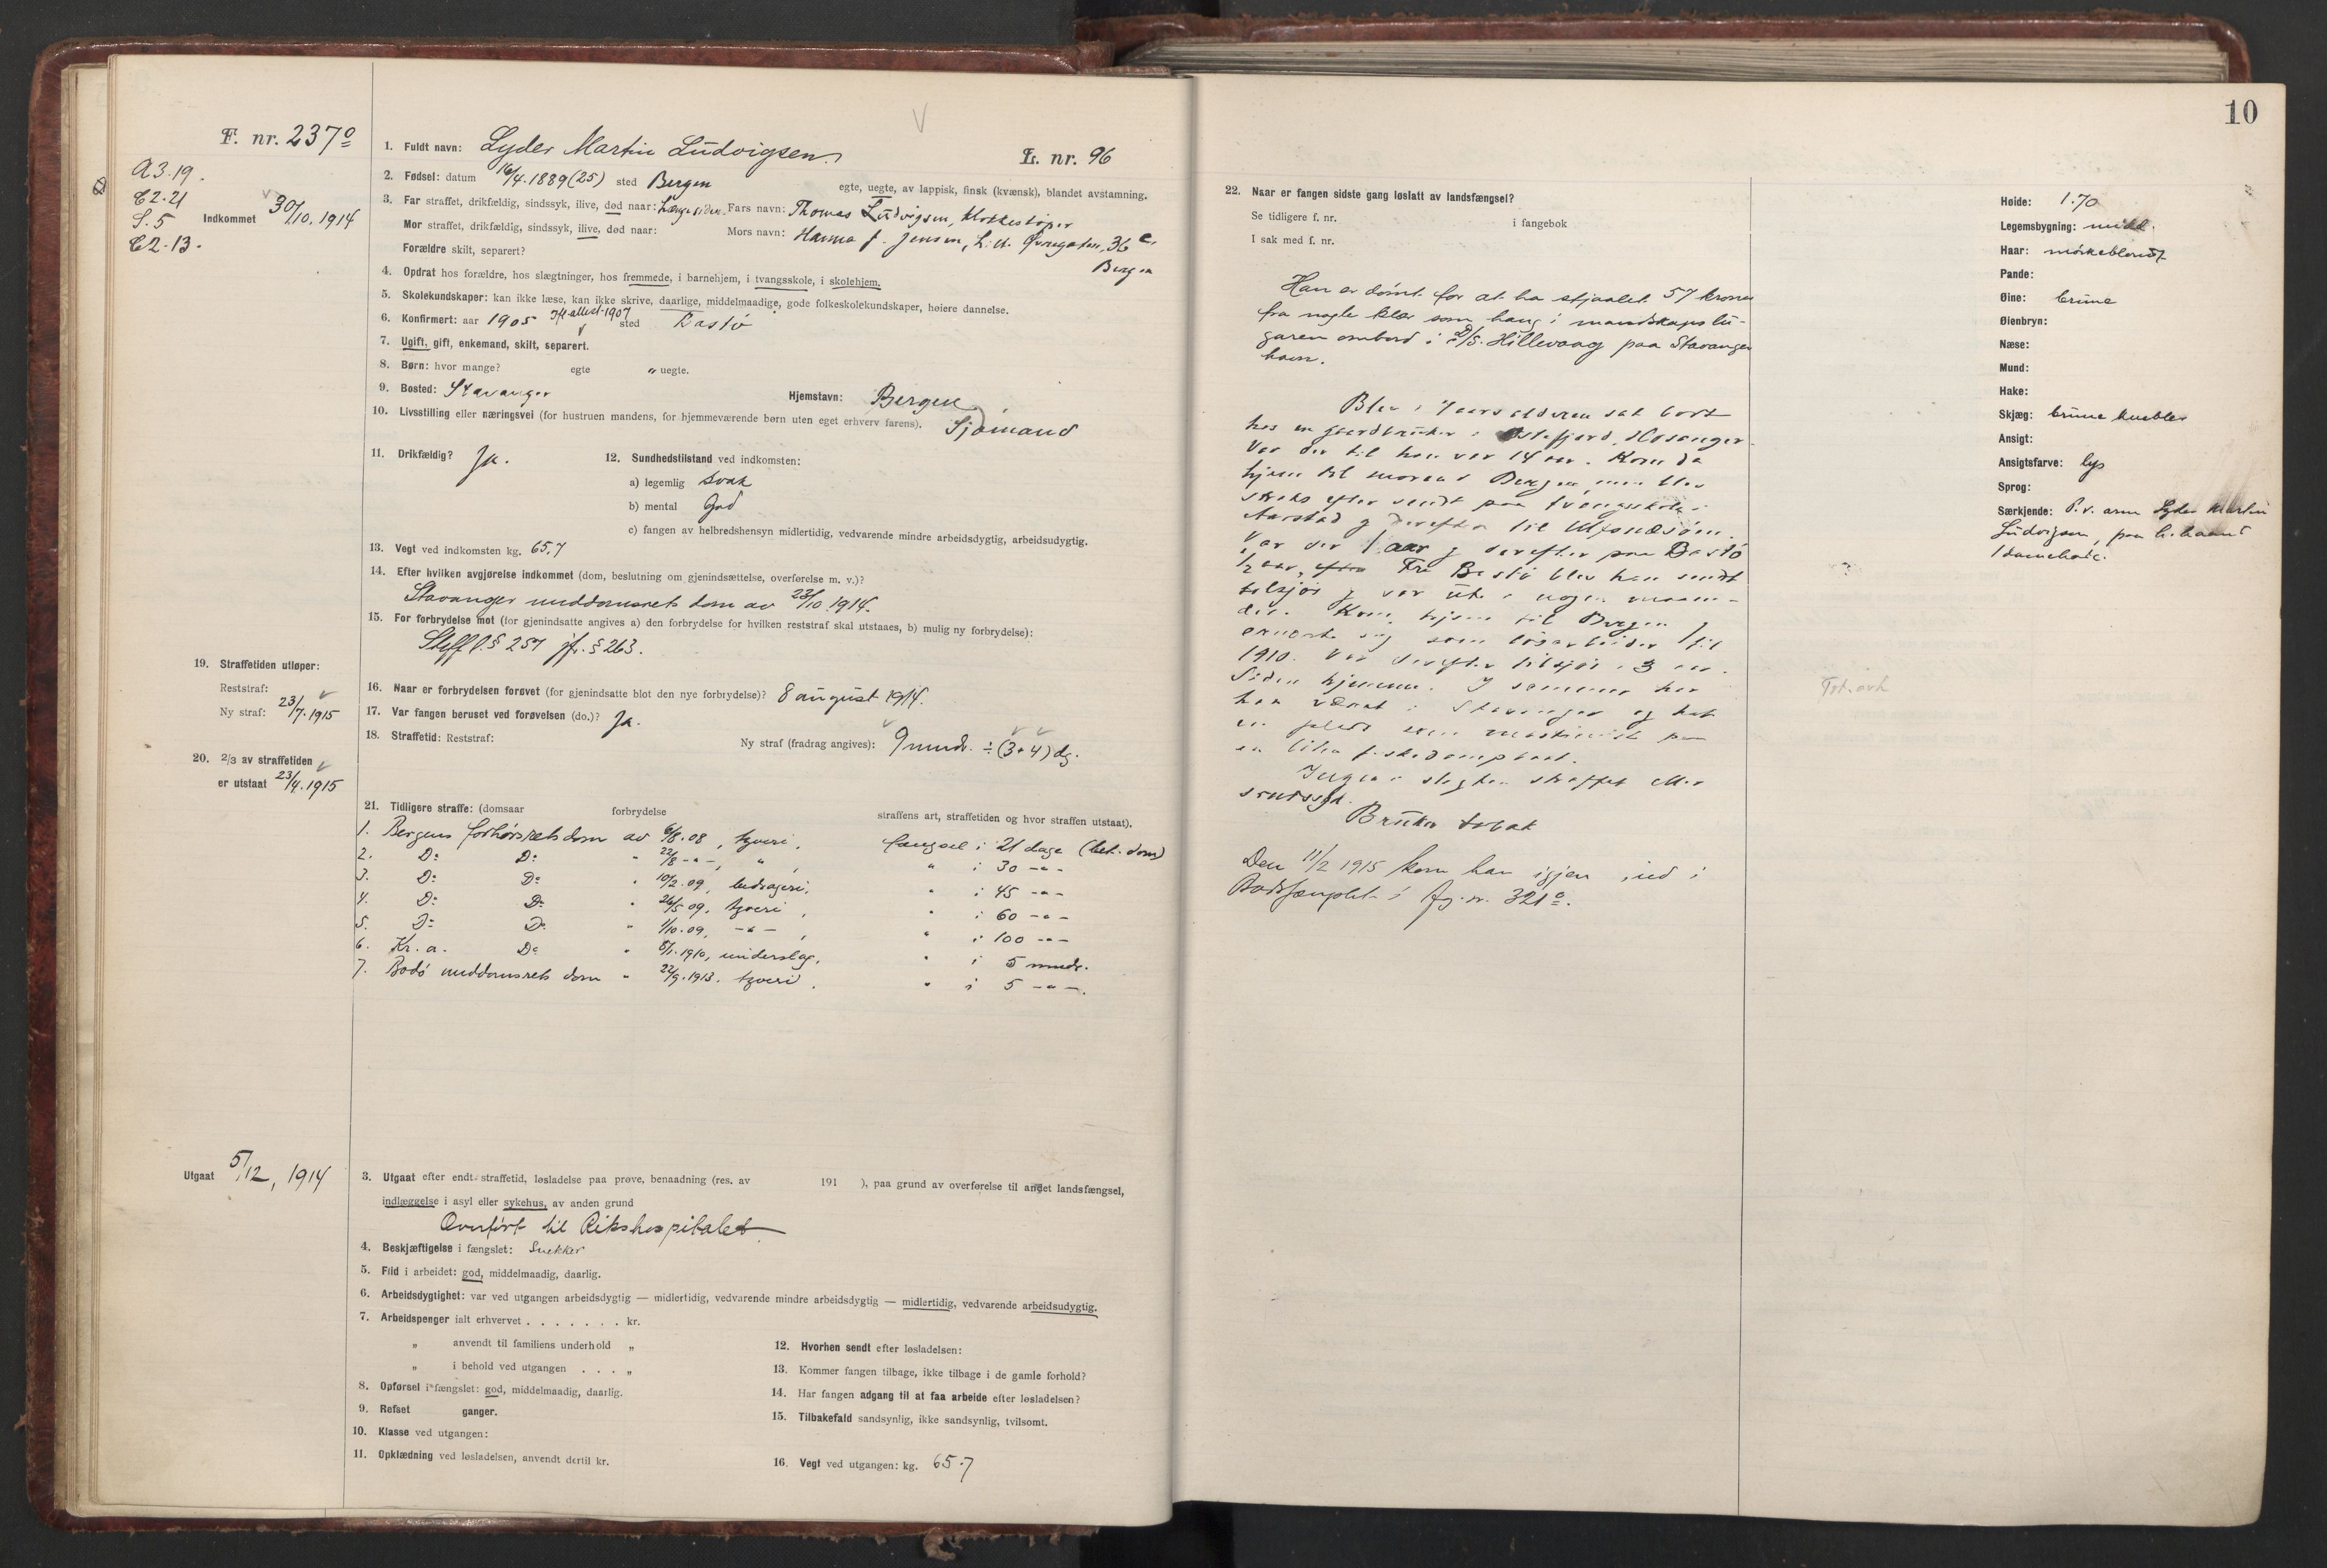 10
F. nr. 237º
A 3.19.
C2.21
S. 5
C2.13.
Indkommet 30/10. 1914
1. Fuldt navn: Lyder Martin Ludvigsen
L. nr. 96
2. Fødsel: datum 16/4.1889 (25) sted Bergen egte, uegte, av lappisk, finsk (kvænsk), blandet avstamning.
3. Far straffet, drikfældig, sindssyk, ilive, død naar: Længe siden Fars navn: Thomas Ludvigsen,
Mor straffet, drikfældig, sindssyk, ilive, død naar: Mors navn: Hanna f. Jensen, L. Øvregaten, 36 c,
Bergen
Forældre skilt, separert?
4. Opdrat hos forældre, hos slægtninger, hos fremmede, i barnehjem, i tvangsskole, i skolehjem.
5. Skolekundskaper: kan ikke læse, kan ikke skrive, daarlige, middelmaadige, gode folkeskolekundskaper, høiere dannelse.
6. Konfirmert: aar 1905 Ifl attest-1907 sted Bastø
7. Ugift, gift, enkemand, skilt, separert.
8. Børn: hvor mange? egte " uegte.
9. Bosted: Stavanger Hjemstavn: Bergen
10. Livsstilling eller næringsvei (for hustruen mandens, for hjemmeværende børn uten eget erhverv farens). Sjømand
11. Drikfældig? Ja.
12. Sundhedstilstand ved indkomsten:
a) legemlig svak
b) mental God
c) fangen av helbredshensyn midlertidig, vedvarende mindre arbeidsdygtig, arbeidsudygtig.
13. Vegt ved indkomsten kg. 65.7
14. Efter hvilken avgjørelse indkommet (dom, beslutning om gjenindsættelse, overførelse m. v.)?
Stavanger meddomsrets dom av 23/10 1914.
15. For forbrydelse mot (for gjenindsatte angives a) den forbrydelse for hvilken reststraf skal utstaaes, b) mulig ny forbrydelse):
Straffl. § 257 jfr. § 263.
19. Straffetiden utløper:
Reststraf:
Ny straf: 23/7.1915
16. Naar er forbrydelsen forøvet (for gjenindsatte blot den nye forbrydelse)? 8 august 1914.
17. Var fangen beruset ved forøvelsen (do.)? Ja.
18. Straffetid: Reststraf: Ny straf (fradrag angives): 9 mndr. ÷ (3+4) dg.
20. 2/3 av straffetiden
er utstaat 23/4.1915
21. Tidligere straffe: (domsaar forbrydelse straffens art, straffetiden og hvor straffen utstaat).
1. Bergens forhørsrets dom av 6/8.08, tyveri, fængsel i 21 dage (bet. dom)
2. Do Do " 22/8 -"-, " , " i 30 -"-
3. Do Do " 10/2.09, bedrageri, " i 45 -"-
4. Do Do " 26/5 09, tyveri, " i 60 -"-
5. Do Do " 1/10.09, -"-, " i 100 -"-
6. Kr.a. Do " 8/1.1910, underslag, " i 5 mndr.
7. Bodø meddomsrets dom " 22/9.1913. tyveri, " i 5 -"-.
Utgaat 5/12, 1914
3. Utgaat efter endt straffetid, løsladelse paa prøve, benaadning (res. av 191 ), paa grund av overførelse til andet landsfængsel,
indlæggelse i asyl eller sykehus, av anden grund
Overført til Rikshospitalet
4. Beskjæftigelse i fængslet: Snekker
5. Flid i arbeidet: god, middelmaadig, daarlig.
6. Arbeidsdygtighet: var ved utgangen arbeidsdygtig — midlertidig, vedvarende mindre arbeidsdygtig — midlertidig, vedvarende arbeidsudygtig.
7. Arbeidspenger ialt erhvervet . . . . . . . kr.
" anvendt til familiens underhold "
" i behold ved utgangen . . . "
8. Opførsel i fængslet: god, middelmaadig, daarlig.
9. Refset ganger.
10. Klasse ved utgangen:
11. Opklædning ved løsladelsen, anvendt dertil kr.
12. Hvorhen sendt efter løsladelsen:
13. Kommer fangen tilbage, ikke tilbage i de gamle forhold?
14. Har fangen adgang til at faa arbeide efter løsladelsen?
15. Tilbakefald sandsynlig, ikke sandsynlig, tvilsomt.
16. Vegt ved utgangen: kg. 65.7
22. Naar er fangen sidste gang løslatt av landsfængsel?
Se tidligere f. nr. i fangebok
I sak med f. nr.
Han er dømt for at ha stjaalet 57 kroner
fra nogle klær som hang i mandskapslu-
garen ombord i D/S. Hillevaag paa Stavanger
havn.
Blev i 7 aars alderen sat bort
hos en gaardbruker i Østefjord, Hosanger.
Var der til han var 14 aar. Kom da
hjem til moren i Bergen, men blev
straks efter sendt paa tvangsskole i
Aarstad og derefter til Ulfsnesøen.
Var der 1 aar og derefter paa Bastø
1/2 aar, Fra Bastø blev han sendt
tilsjøs og var ute i nogen maane-
der. Kom hjem til Bergen og
ernærte sig som løsarbeider til
1910. Var derefter tilsjøs i 3 aar.
Siden hjemme. I sommer har
han været i Stavanger og hat
en plads som maskinist paa
en liten fiskedampbaat.
Ingen i slegten straffet eller
sindssyk.
Bruker tobak
Den 11/2 1915 kom han igjen ind i
Botsfængslet i fg. nr. 321º.
Høide: 1.70
Legemsbygning: midd.
Haar: mørkeblondt
Pande:
Øine: brune
Øienbryn:
Næse:
Mund:
Hake:
Skjæg: brune knebler
Ansigt:
Ansigtsfarve: lys
Sprog:
Særkjende: P. v. arm Lyder Martin
Ludvigsen, paa h. haand
1 damehode.